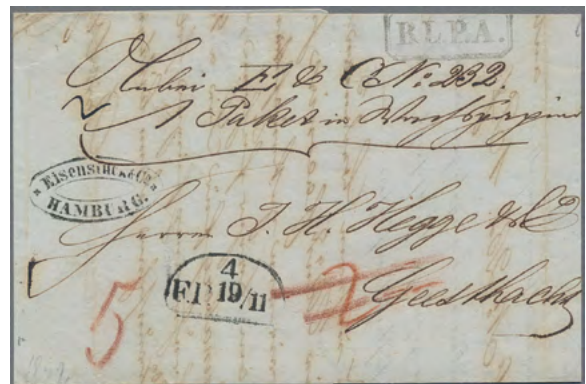 R.L.P.A.
Hiebei E & C No: 232.
1 Paket in Wachspapier
EISENSTUCK & Co.
HAMBURG.
Herrn J. H. Hegge & C
4
19/11
5
2
Geesthacht